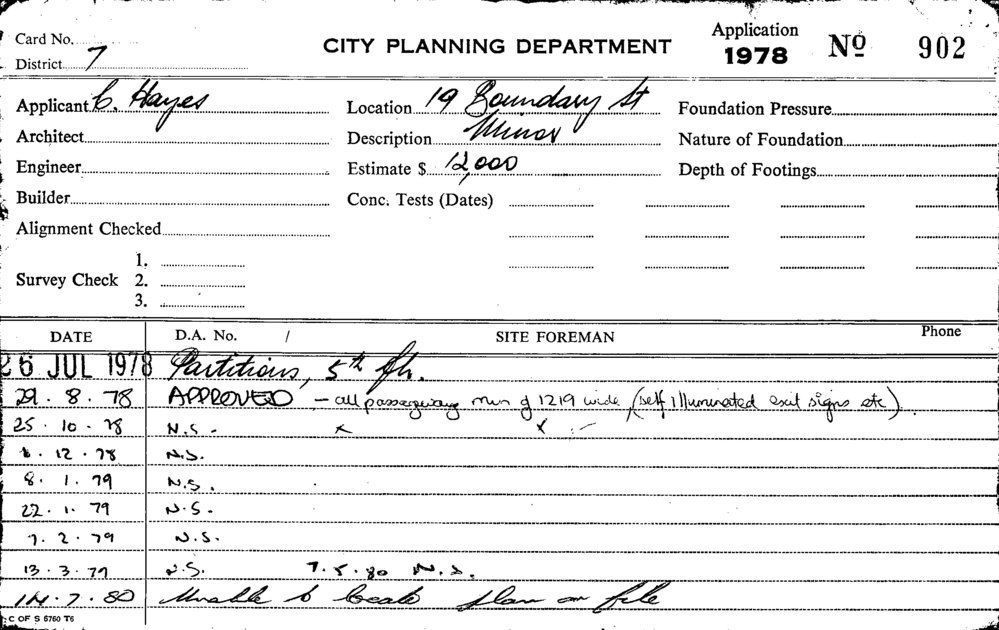 Card No.
District 7
CITY PLANNING DEPARTMENT
Application
1978
No 902
Applicant C. Hayes
Location 19 Boundary St
Foundation Pressure
Architect
Description Minor
Nature of Foundation
Engineer
Estimate $ 12,000
Depth of Footings
Builder
Conc. Tests (Dates)
Alignment Checked
Survey Check
1.
2.
3.
DATE D.A. No. / SITE FOREMAN Phone
26 JUL 1978 Partitions, 5th flr.
29. 8. 78 APPROVED - all passageway min of 1219 wide, (self illuminated exit signs etc)
25. 10. 78 N.S. -
12. 78 N.S.
8. 1. 79 N.S.
22. 1. 79 N.S.
7. 2. 79 N.S.
13. 3. 79 N.S. 7.5.80 N.S.
14.7.80 Unable to locate plan on file
C OF S 6760 T6